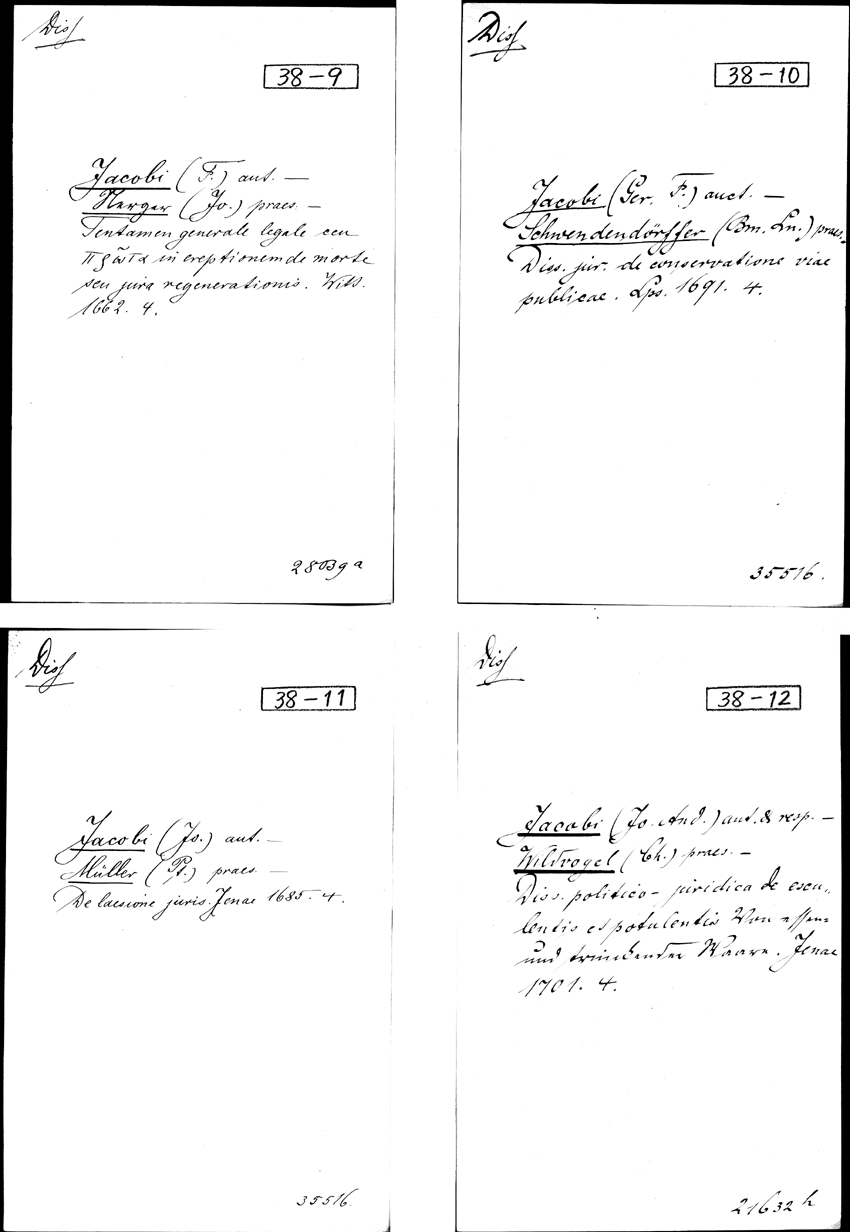 Diss
38-9
Jacobi (F.) aut. —
Nerger (Jo.) praes. —
Tentamen generale legale ceu
πρῶτα in ereptionem de morte
seu jura regenerationis. Witt.
1662. 4.
28039 a
Diss
38-10
Jacobi (Ger. F.) auct. —
Schwendendörffer (Bm. Ln.) praes.
Diss. jur. de conservatione viae
publicae. Lps. 1691. 4.
35516.
Diss
38-11
Jacobi (Jo.) aut. —
Müller (Pt.) praes. —
De laesione juris. Jenae 1685. 4.
35516.
Diss
38-12
Jacobi (Jo. And.) aut. & resp. —
Wildvogel (Ch.) praes. —
Diss. politico-juridica de escu-
lentis et potulentis Von essen-
und trinckender Waare. Jenae
1701. 4.
21632 h